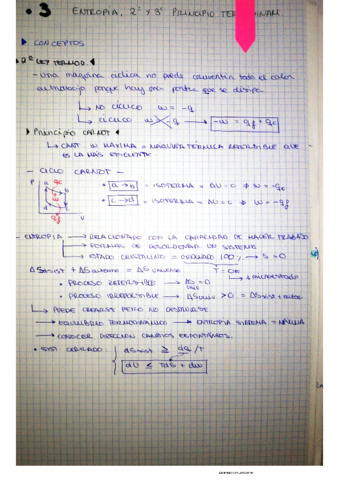 3 ENTROPIA, 2º y 3º PRINCIPIO TERMODINAM.
CONCEPTOS
2º LEY TERMOD.
- Una maquina cíclica no puede convertir todo el calor
a trabajo porque hay una parte que se disipa
NO CÍCLICO w = -q
CÍCLICO w -q → -w = qf + qc
Principio CARNOT
CANT. W MÁXIMA = MAQUINA TÉRMICA REVERSIBLE QUE
ES LA MÁS EFICIENTE
- CICLO CARNOT -
P qc
a → b = ISOTERMA = ΔU = 0 ⇒ W = -qc
c → d = ISOTERMA - ΔU = 0 ⇒ W = -qf
qf V
- ENTROPIA → RELACIONADO CON LA CAPACIDAD DE HACER TRABAJO
FORMAS DE DESORDENAR UN SISTEMA
ESTADO CRISTALINO = ORDENADO 100% → S = 0
ΔSsist + ΔSentorno = ΔSuniverso T = cte
1 microestado
• PROCESO REVERSIBLE → ΔS = 0
• PROCESO IRREVERSIBLE → ΔSuniv > 0 = ΔSsist + entor
PUEDE CREARSE PERO NO DESTRUIRSE
EQUILIBRIO TERMODINÁMICO → ENTROPÍA SISTEMA = MÁXIMA
CONOCER DIRECCION CAMBIOS ESPONTÁNEOS.
• SIST CERRADO: dSsist ≥ dq/T
dU ≤ TdS + dw